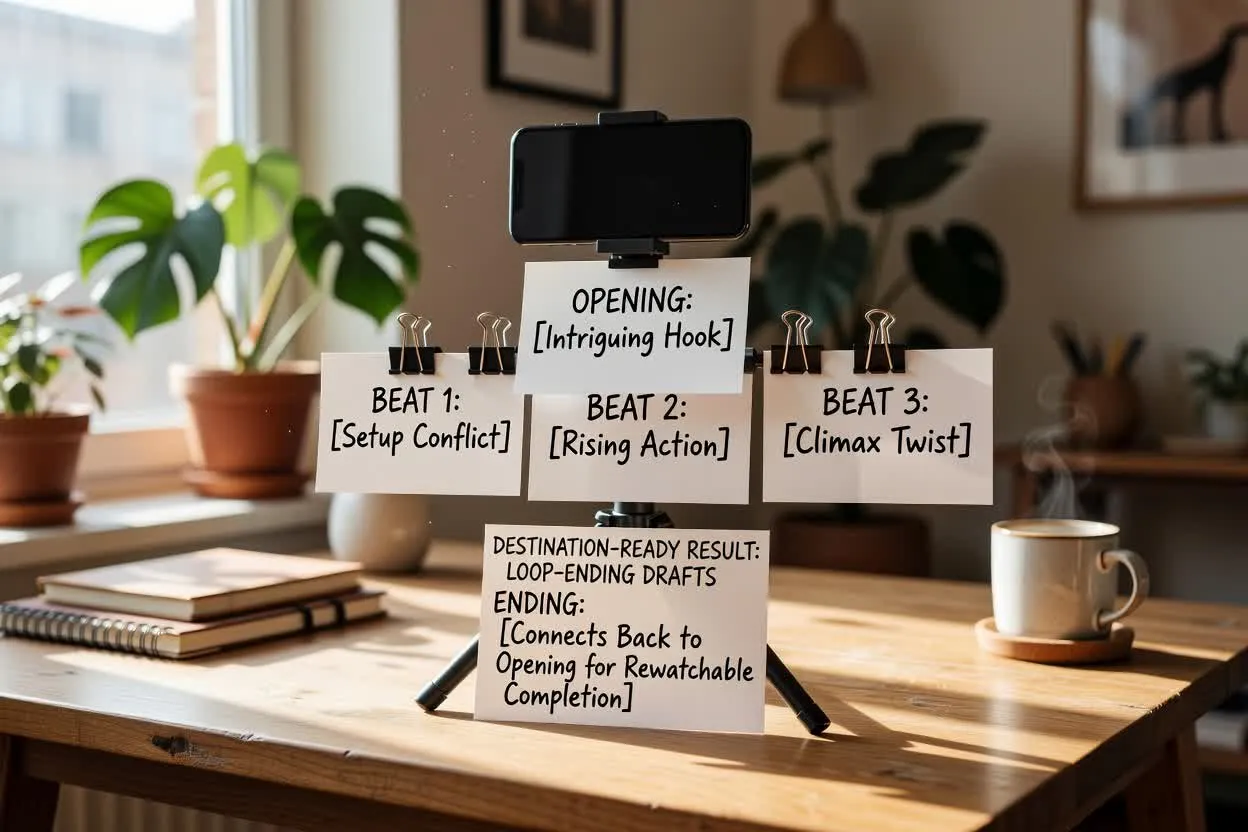 OPENING:
[Intriguing Hook]
BEAT 1:
[Setup Conflict]
BEAT 2:
[Rising Action]
BEAT 3:
[Climax Twist]
DESTINATION-READY RESULT:
LOOP-ENDING DRAFTS
ENDING:
[Connects Back to
Opening for Rewatchable
Completion]